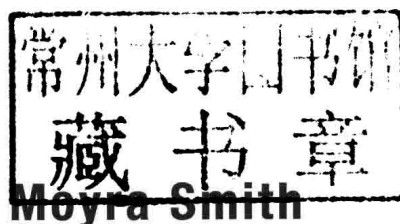 常州大学图书馆
藏书章
Moyra Smith